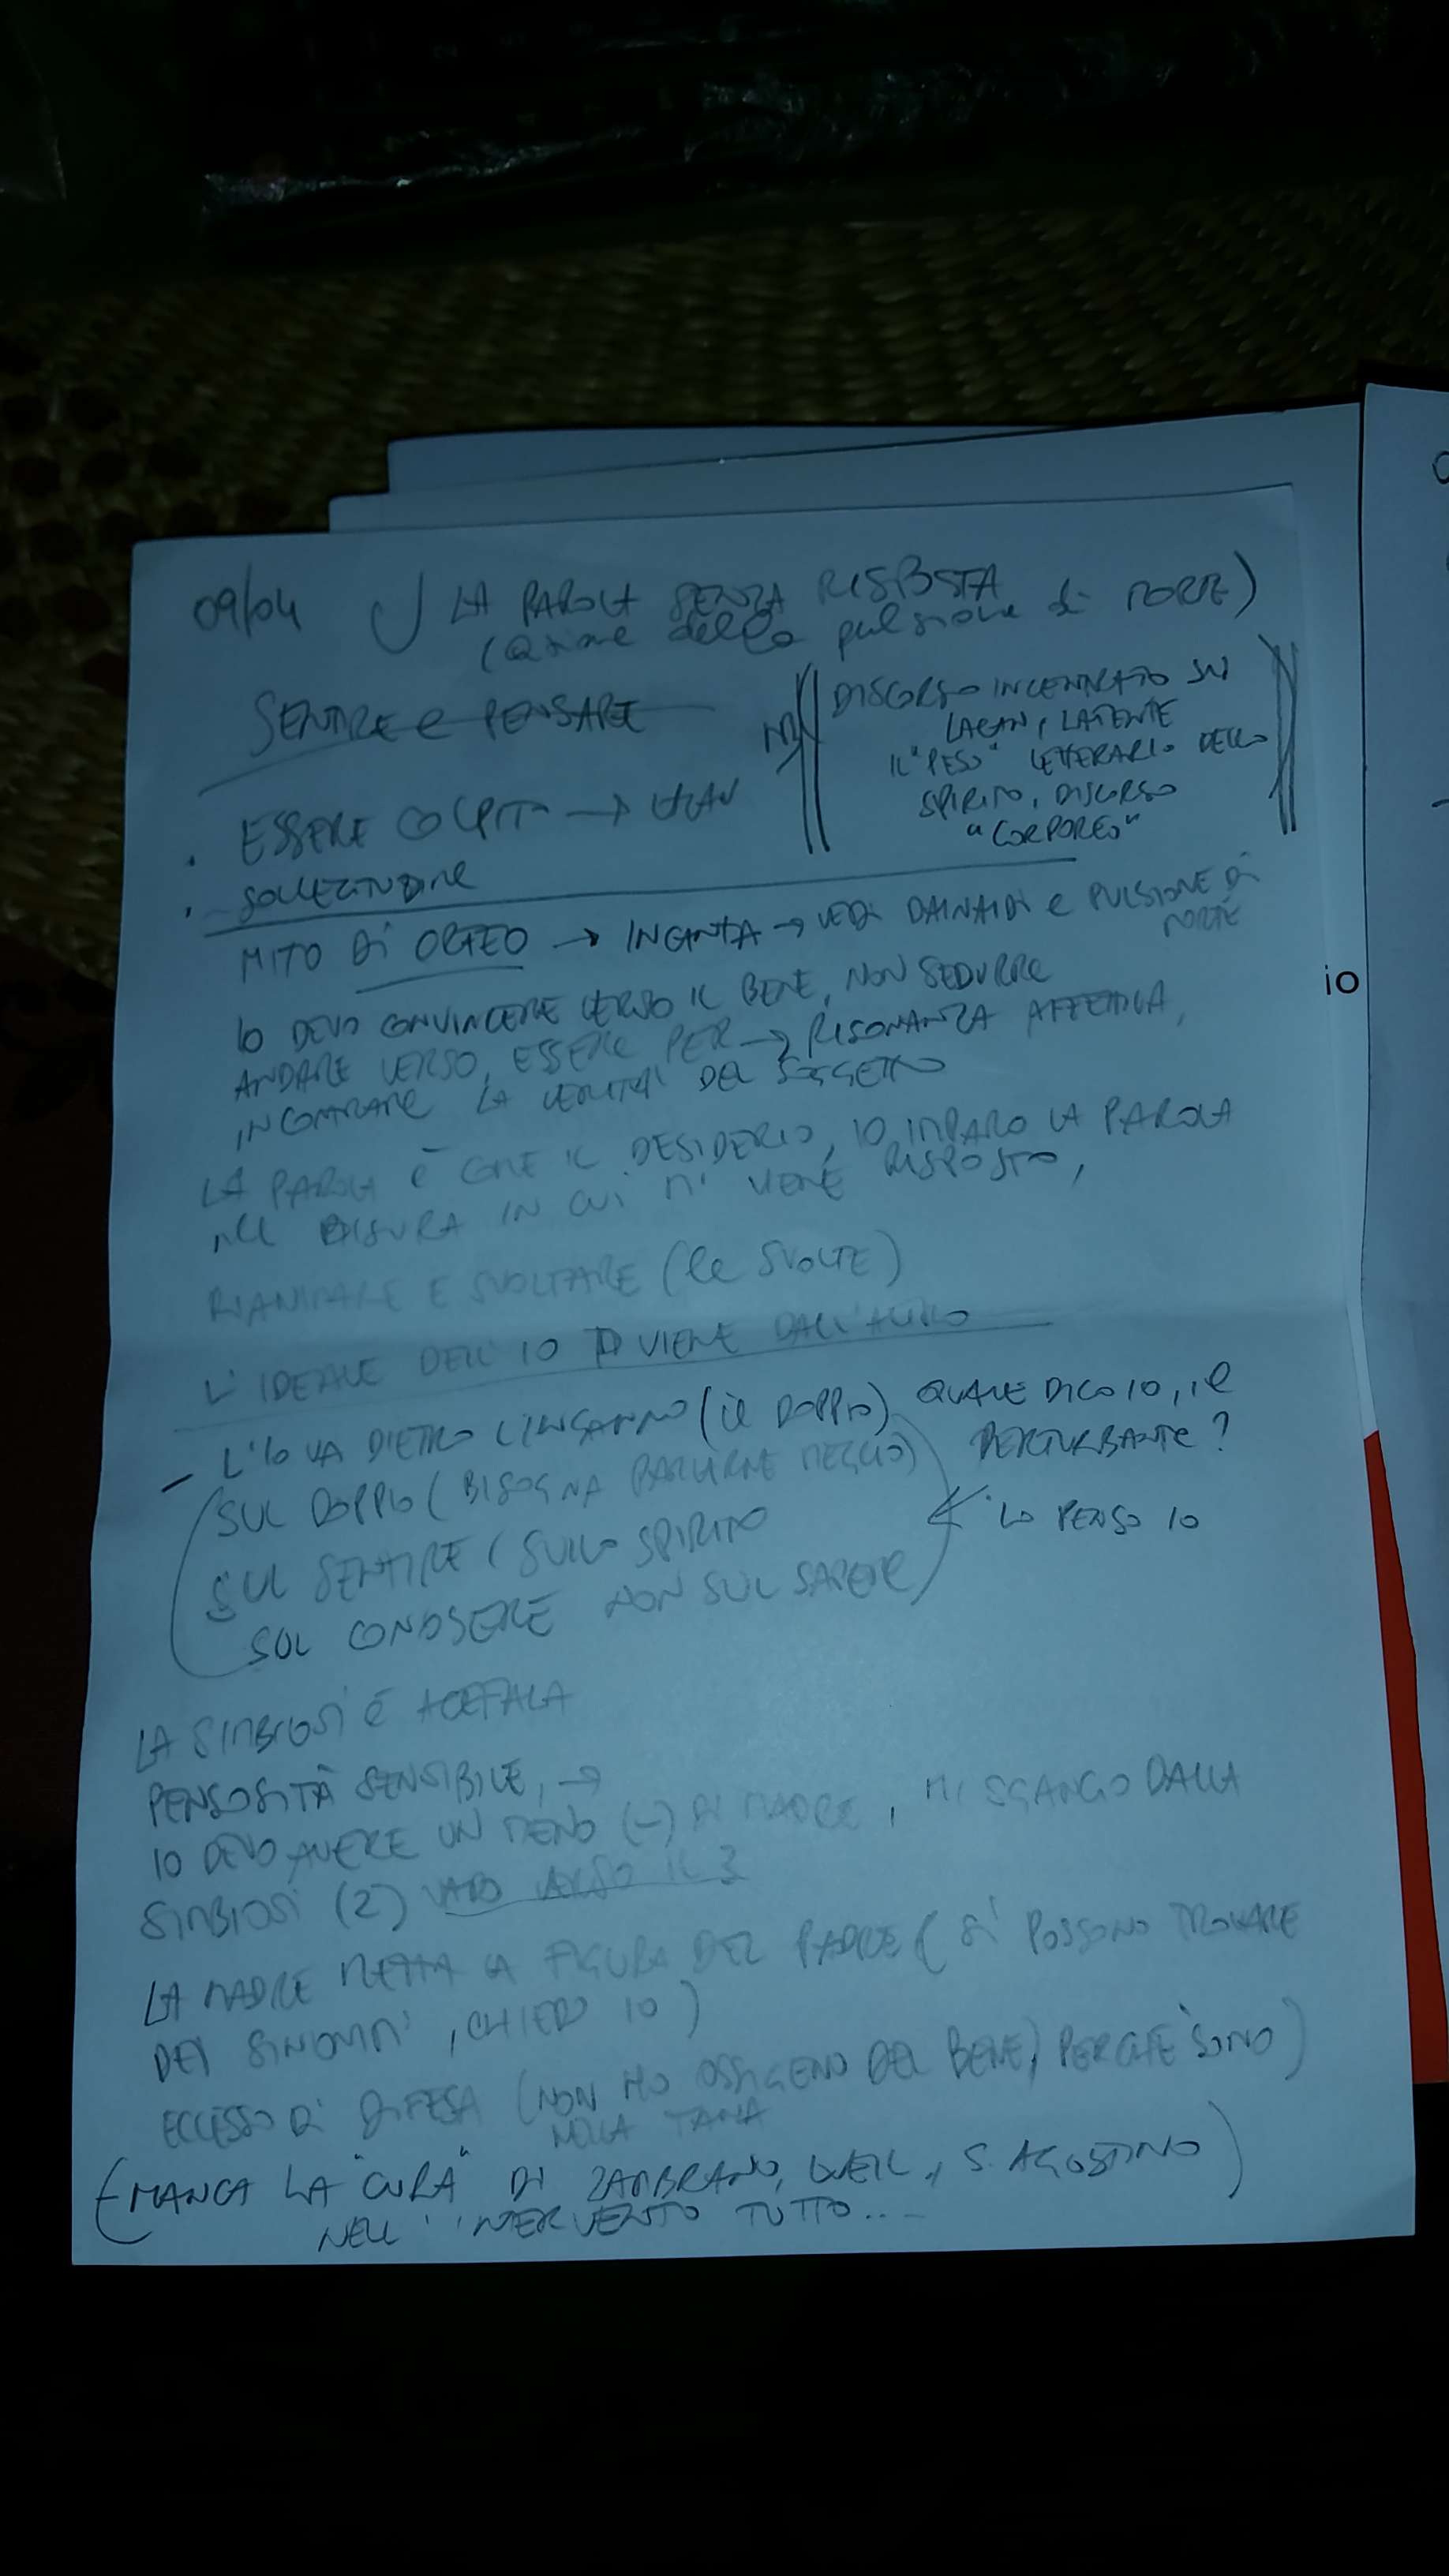 09/04 LA PAROLA SENZA RISPOSTA
(azione della pulsione di MORTE)
SENTIRE e PENSARE
NB
DISCORSO INCENTRATO SU
LACAN, LATENTE
IL "PESO" LETTERARIO DELLO
SPIRITO, DISCORSO
"CORPOREO"
. ESSERE COLPITO → LACAN
. SOLLECITUDINE
MITO Di ORFEO → INCANTA → VEDI DAINAIDI e PULSIONE Di
MORTE
IO DEVO CONVINCERE VERSO IL BENE, NON SEDURRE
ANDARE VERSO, ESSERE PER → RISONANZA AFFETTIVA,
INCONTRARE LA VERITA' DEL SOGGETTO
LA PAROLA È COME IL DESIDERIO, IO IMPARO LA PAROLA
NELLA MISURA IN CUI MI VIENE RISPOSTO,
RIANIMARE E SVOLTARE (le SVOLTE)
L'IDEALE DELL'IO VIENE DALL'ALTRO
- L'IO VA DIETRO L'INGANNO (il DOPPIO) QUALE DICO IO, il
PERTURBANTE?
(SUL DOPPIO (BISOGNA PARLARNE MEGLIO)
SUL SENTIRE (SULLO SPIRITO
← LO PENSO IO
SUL CONOSERE NON SUL SAPERE)
LA SIMBIOSI È ACEFALA
PENSOSITÀ SENSIBILE, →
IO DEVO AVERE UN MENO (-) DI MADRE, MI SGANCIO DALLA
SIMBIOSI (2) VADO VERSO IL 3
LA MADRE METTA LA FIGURA DEL PADRE (SI POSSONO TROVARE
DEI SINONIMI, CHIEDO IO)
ECCESSO DI DIFESA (NON HO OSSIGENO DEL BENE) PERCHÈ SONO)
NELLA TANA
(MANCA LA "CURA" DI ZAMBRANO, WEIL, S. AGOSTINO)
NELL'INTERVENTO TUTTO...
io